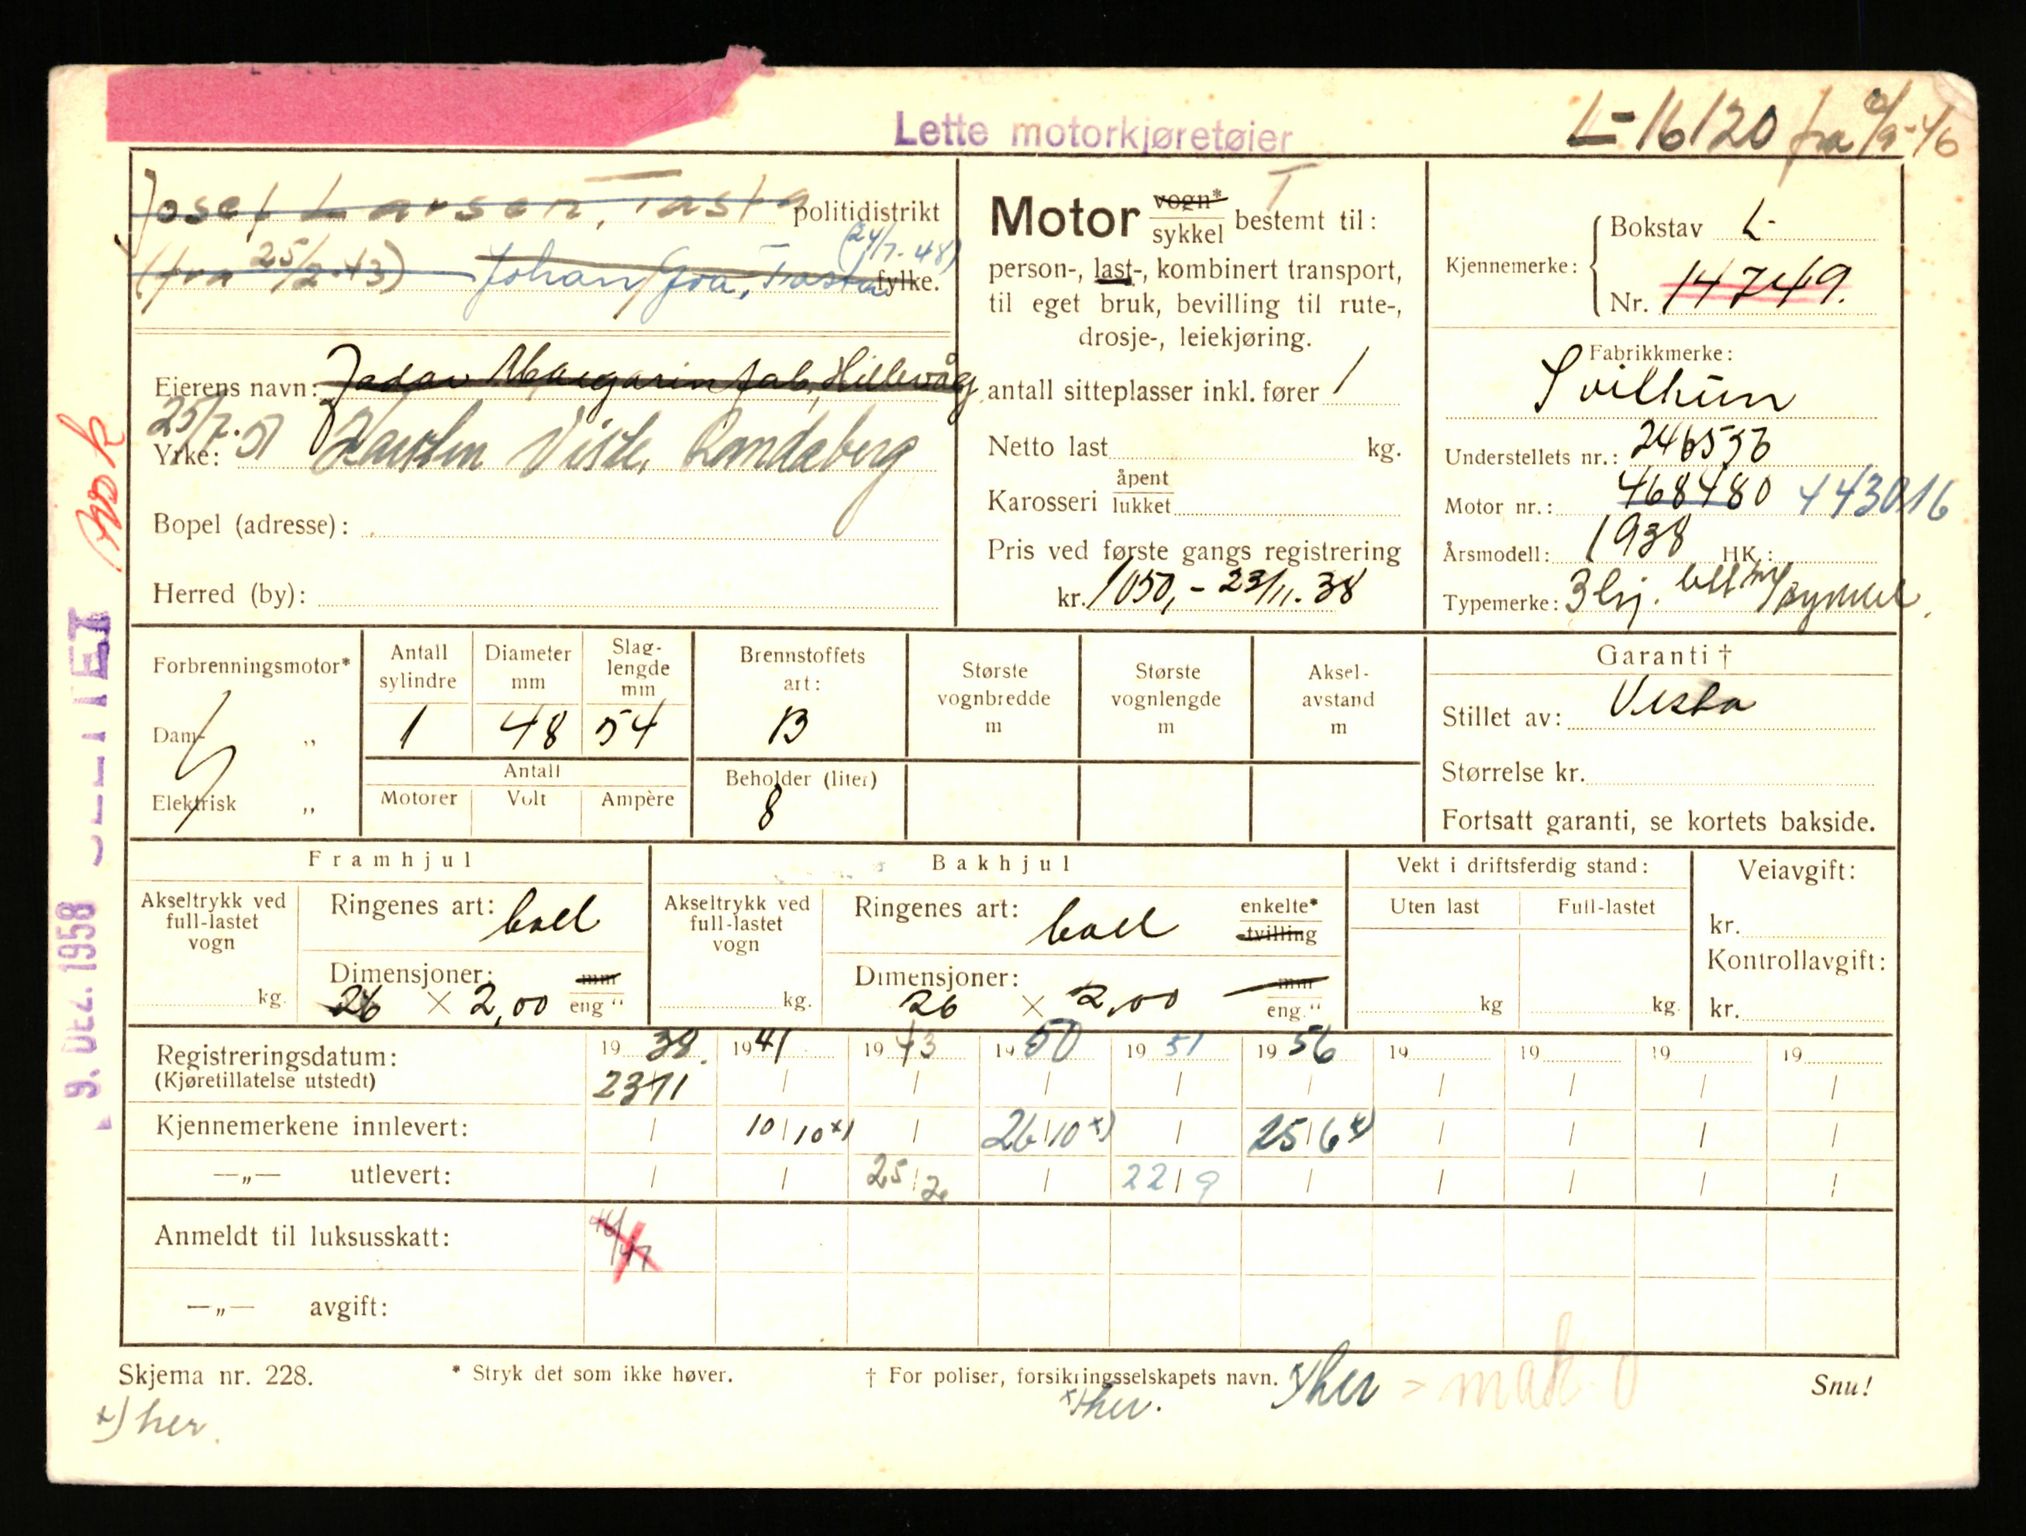 Lette motorkjøretøier
L-16120 fra
Josef Larsen, Tasta politidistrikt
(fra 25/2-43) Johan Goa, Tasta (24/7-48) fylke.
Eierens navn: Jadar Margarinfab, Hillevåg
25/7.51
Yrke: Karsten Viste, Randaberg
Bopel (adresse):
Herred (by):
Motor vogn* sykkel bestemt til:
person-, last-, kombinert transport,
til eget bruk, bevilling til rute-,
drosje-, leiekjøring.
antall sitteplasser inkl. fører 1
Netto last kg.
Karosseri åpent lukket
Pris ved første gangs registrering
kr. 1050,- 23/11.38
Kjennemerke: Bokstav L-
Nr. 14749.
Fabrikkmerke:
Svithun
Understellets nr.: 246556
Motor nr.: 468480 443016
Årsmodell: 1938 HK.:
Typemerke: 3 hj.
Forbrenningsmotor*
Damp- „
Elektrisk „
Antall sylindre 1
Diameter mm 48
Slaglengde mm 54
Antall
Motorer Volt Ampère
Brennstoffets art: B
Beholder (liter) 8
Største vognbredde m
Største vognlengde m
Akselavstand m
Garanti †
Stillet av: Vesta
Størrelse kr.
Fortsatt garanti, se kortets bakside.
Framhjul
Akseltrykk ved full-lastet vogn kg.
Ringenes art: ball
Dimensjoner: 26 × 2,00 mm eng "
Bakhjul
Akseltrykk ved full-lastet vogn kg.
Ringenes art: ball enkelte* tvilling
Dimensjoner: 26 × 2,00 mm eng."
Vekt i driftsferdig stand:
Uten last Full-lastet
kg kg.
Veiavgift:
kr.
Kontrollavgift:
kr.
Registreringsdatum: 19 38. 19 41 19 43 19 50 19 51 19 56 19 19 19 19
(Kjøretillatelse utstedt) 23/11 / / / / / / / / /
Kjennemerkene innlevert: / 10/10 x) / 26/10 x) / 25/6 x) / / / /
—„— utlevert: / / 25/2 / 22/9 / / / / /
Anmeldt til luksusskatt: 46/47
—„— avgift:
Skjema nr. 228. * Stryk det som ikke høver. † For poliser, forsikringsselskapets navn. x) her = mak 0 Snu!
x) her. x) her.
9. DEZ. 1958 SLETTET